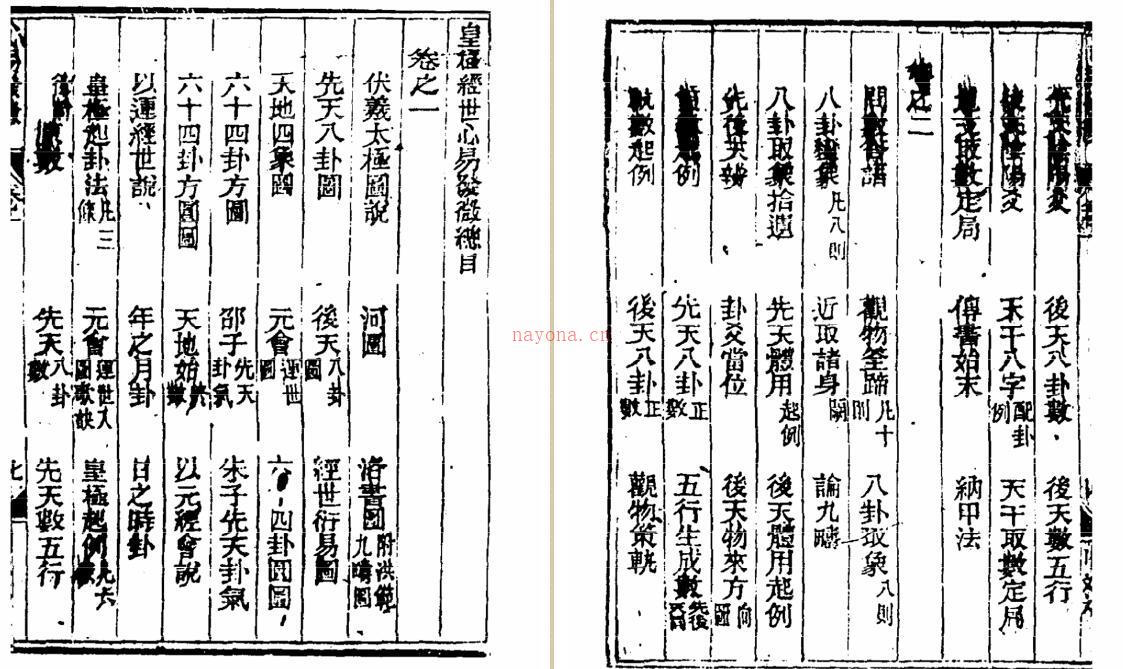 皇極經世心易發微總目
卷之一
伏羲太極圖說 河圖 洛書圖附洪範九疇圖
先天八卦圖 後天八卦圖 經世衍易圖
天地四象圖 元會運世圖 六十四卦圓圖
六十四卦方圖 邵子先天卦氣 朱子先天卦氣
六十四卦方圓圖 天地始終數 以元經會說
以運經世說 年之月卦 日之時卦
皇極起卦法凡三條 元會運世入圖歌訣 皇極起例凡六
先天八卦數 先天數五行
陰陽爻 後天八卦數 後天數五行
陰陽爻 天干八字配卦例 天干取數定局
地支取數定局 傳書始末 納甲法
卷之二
觀物筌蹄凡十則 八卦取象八則
八卦 象凡八則 近取諸身圖 論九疇
八卦取象拾遺 先天體用起例 後天體用起例
先後天辨 卦爻當位 後天物來方向圖
例 先天八卦正數 五行生成數
數起例 後天八卦正數 觀物策軌
nayona.cn